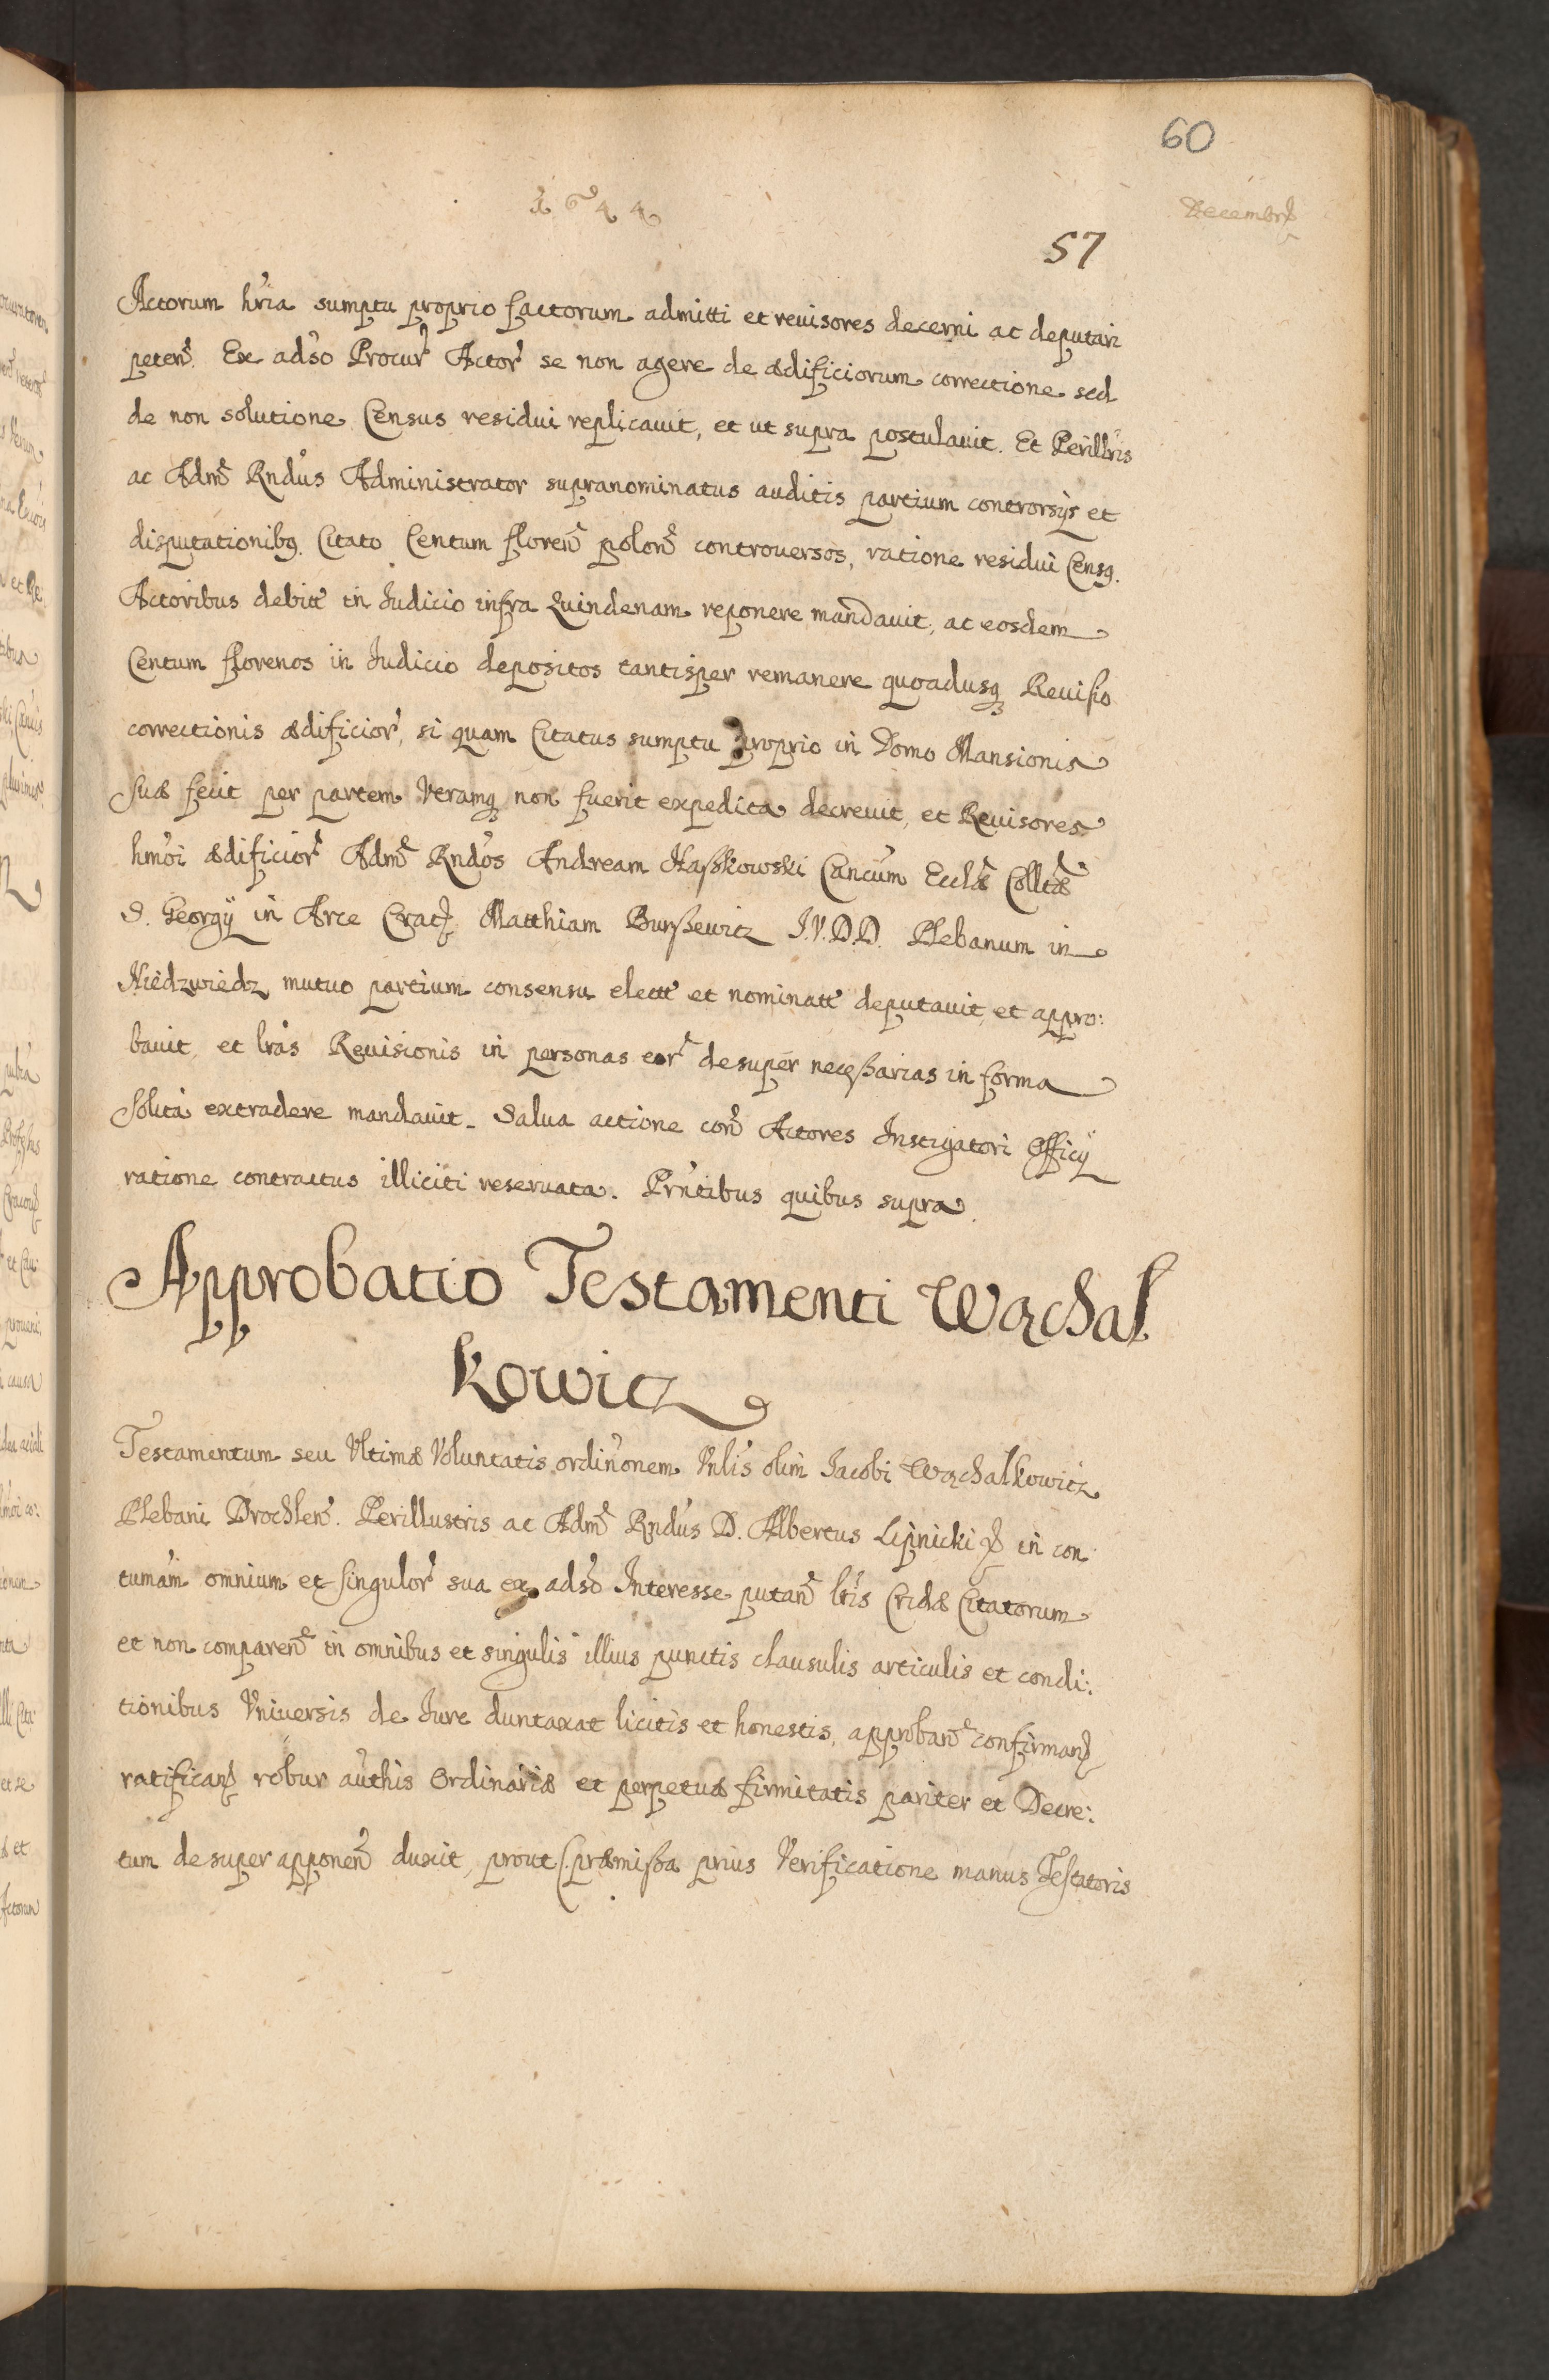 60
1644
Decembr
57
Actorum hr̃ia sumptu proprio factorum admitti et reuisores decerni ac deputari
peteñ. Ex adso Procur Actor se non agere de ædificiorum correctione sed
de non solutione Census residui replicauit, et ut supra postulauit. Et Perillris
ac Adm Rndus Administrator supranominatus auditis partium controrsijs et
disputationibq. Citato Centum floreñ poloñ controuersos, ratione residui Censq.
Actoribus debitt in Judicio infra Quindenam reponere mandauit, ac eosdem
Centum florenos in Judicio depositos tantisper remanere quoadusq Reuisio
correctionis ædificior, si quam Citatus sumptu proprio in Domo Mansionis
suæ fecit per partem Utramq non fuerit expedita decreuit, et Reuisores
hmoi ædificior Adm Rndos Andream Naßkowski Cancum Ecclæ Colltæ
S. Georgij in Arce Crac Matthiam Burßewicz J.V.D.D. Plebanum in
Niedzwiedz mutuo partium consensu electt et nominatt deputauit, et appro:
bauit, et lras Reuisionis in personas eor desuper neceßarias in forma
solita extradere mandauit. Salua actione coñ Actores Instigatori Officij
ratione contractus illiciti reseruata. Prntibus quibus supra.
Approbatio Testamenti Wąchal
kowicz
Testamentum seu Ultimæ Voluntatis ordinonem Vnlis olim Jacobi Wąchalkowicz
Plebani Drochleñ. Perillustris ac Adm Rndus D. Albertus Lipnicki in con
tumam omnium et singulor sua ex adso Interesse putañ ltris Cridæ Citatorum
et non compareñ in omnibus et singulis illius punctis clausulis articulis et condi:
tionibus Vniuersis de Jure duntaxat licitis et honestis, approbañ confirmañ
ratificañ robur authis Ordinariæ et perpetuæ firmitatis pariter et Decre:
tum desuper apponeñ duxit, prout præmißa prius Verificatione manus Testatoris